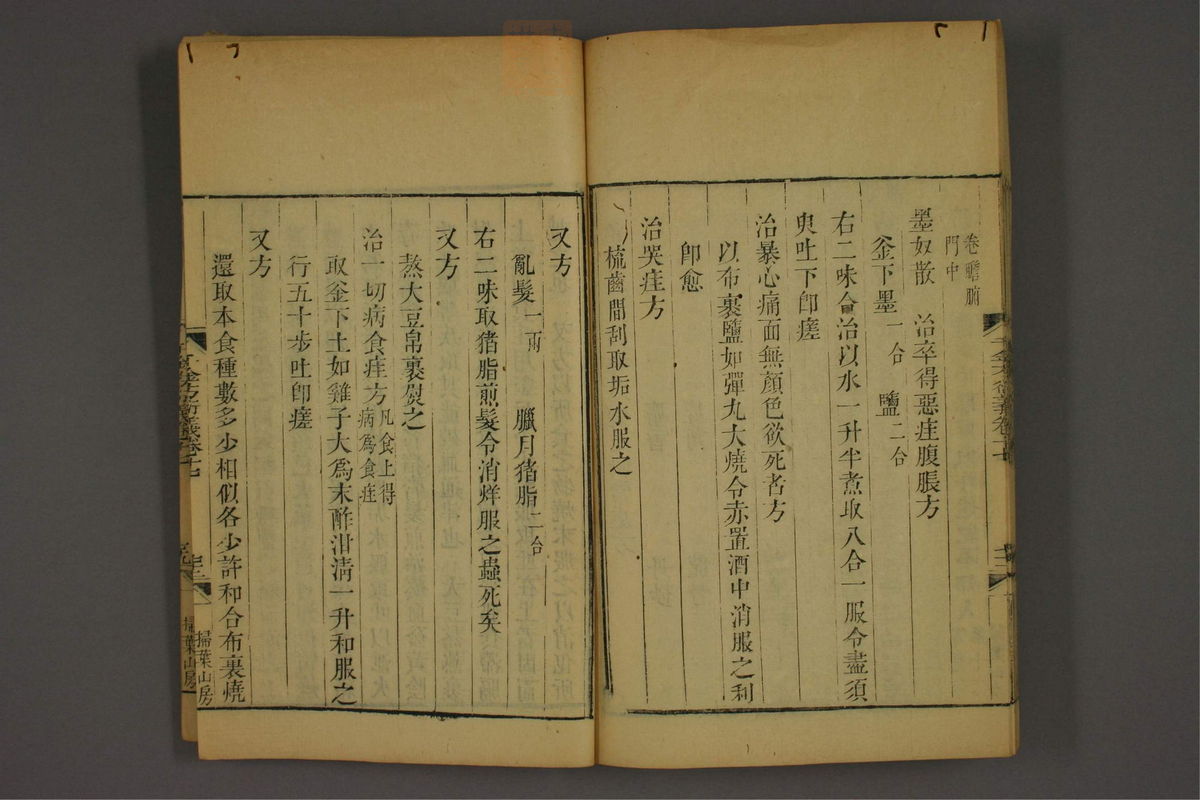 卷膽腑
門中
墨奴散　治卒得惡疰腹脹方
釜下墨一合　鹽二合
右二味合治以水一升半煮取八合一服令盡須
臾吐下卽瘥
治暴心痛面無顏色欲死者方
以布裹鹽如彈丸大燒令赤置酒中消服之利
卽愈
治哭疰方
梳齒間刮取垢水服之
又方
亂髮一兩　臘月猪脂二合
右二味取猪脂煎髮令消烊服之蟲死矣
又方
熬大豆帛裹熨之
治一切病食疰方凡食上得病爲食疰
取釜下土如雞子大爲末酢泔淸一升和服之
行五十步吐卽瘥
又方
還取本食種數多少相似各少許和合布裹燒
掃葉山房